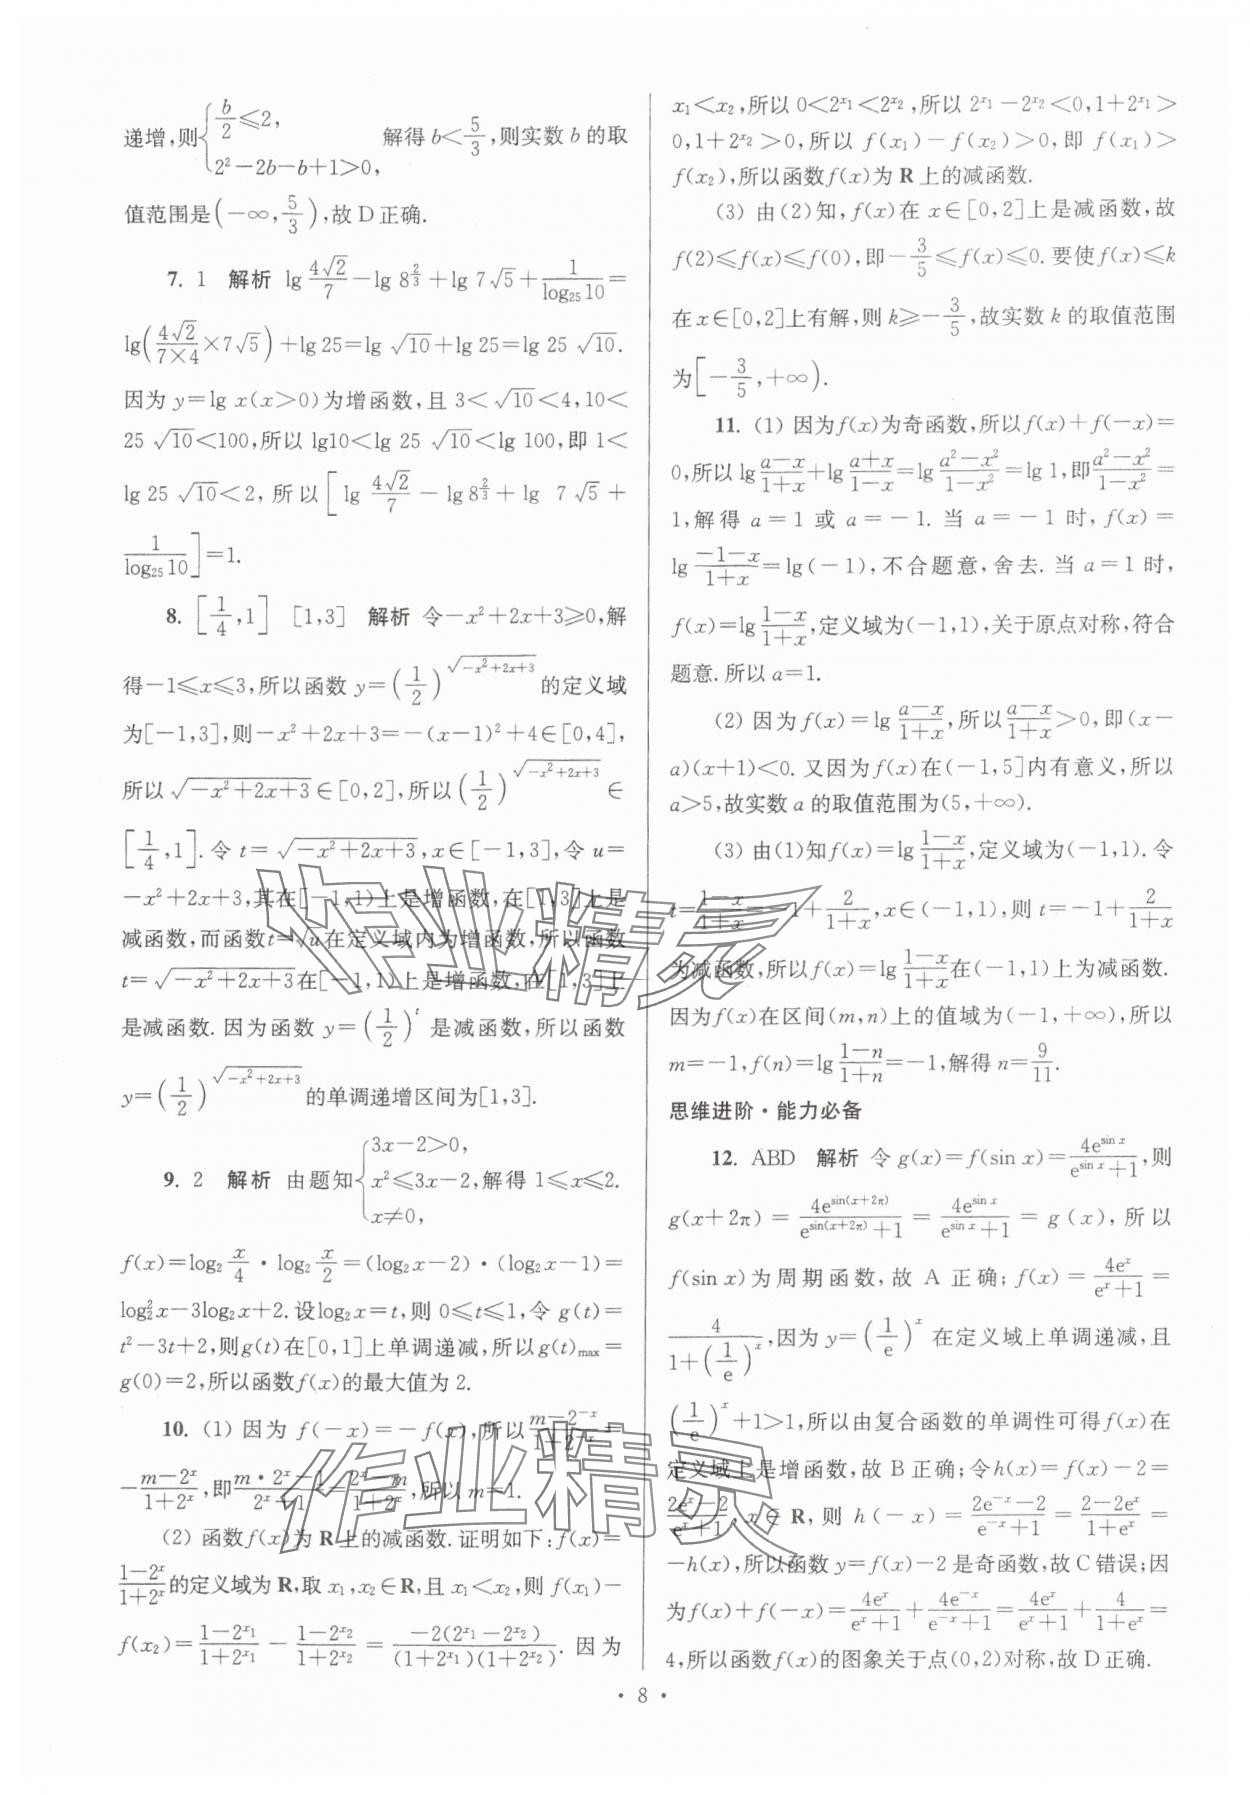 递增,则{b/2≤2, 2²−2b−b+1>0, 解得 b<5/3,则实数 b 的取
值范围是(−∞,5/3),故 D 正确.
7. 1 解析 lg 4√2/7−lg 8^(2/3)+lg 7√5+1/log₂₅10=
lg(4√2/(7×4)×7√5)+lg 25=lg √10+lg 25=lg 25 √10.
因为 y=lg x(x>0)为增函数,且 3<√10<4,10<
25 √10<100,所以 lg10<lg 25 √10<lg 100,即 1<
lg 25 √10<2,所以[lg 4√2/7−lg 8^(2/3)+lg 7√5+
1/log₂₅10]=1.
8. [1/4,1] [1,3] 解析 令−x²+2x+3≥0,解
得−1≤x≤3,所以函数 y=(1/2)^√(−x²+2x+3) 的定义域
为[−1,3],则−x²+2x+3=−(x−1)²+4∈[0,4],
所以 √(−x²+2x+3)∈[0,2],所以(1/2)^√(−x²+2x+3) ∈
[1/4,1].令 t=√(−x²+2x+3),x∈[−1,3],令 u=
−x²+2x+3,其在[−1,1)上是增函数,在[1,3]上是
减函数,而函数t=√u在定义域内为增函数,所以函数
t=√(−x²+2x+3)在[−1,1)上是增函数,在[1,3]上
是减函数.因为函数 y=(1/2)^t 是减函数,所以函数
y=(1/2)^√(−x²+2x+3)的单调递增区间为[1,3].
9. 2 解析 由题知{3x−2>0, x²≤3x−2, x≠0, 解得 1≤x≤2.
f(x)=log₂ x/4·log₂ x/2=(log₂x−2)·(log₂x−1)=
log₂²x−3log₂x+2.设log₂x=t,则 0≤t≤1,令 g(t)=
t²−3t+2,则g(t)在[0,1]上单调递减,所以g(t)max=
g(0)=2,所以函数f(x)的最大值为 2.
10. (1) 因为 f(−x)=−f(x),所以(m−2^(−x))/(1+2^(−x))=
−(m−2^x)/(1+2^x),即(m·2^x−1)/(2^x+1)=(2^x−m)/(1+2^x),所以 m=1.
(2) 函数f(x)为 R上的减函数.证明如下:f(x)=
(1−2^x)/(1+2^x)的定义域为 R,取 x₁,x₂∈R,且 x₁<x₂,则 f(x₁)−
f(x₂)=(1−2^x₁)/(1+2^x₁)−(1−2^x₂)/(1+2^x₂)=−2(2^x₁−2^x₂)/((1+2^x₁)(1+2^x₂)).因为
x₁<x₂,所以 0<2^x₁<2^x₂,所以 2^x₁−2^x₂<0,1+2^x₁>
0,1+2^x₂>0,所以 f(x₁)−f(x₂)>0,即 f(x₁)>
f(x₂),所以函数f(x)为 R 上的减函数.
(3) 由(2)知,f(x)在 x∈[0,2]上是减函数,故
f(2)≤f(x)≤f(0),即−3/5≤f(x)≤0.要使f(x)≤k
在 x∈[0,2]上有解,则 k≥−3/5,故实数 k 的取值范围
为[−3/5,+∞).
11. (1) 因为f(x)为奇函数,所以f(x)+f(−x)=
0,所以 lg (a−x)/(1+x)+lg (a+x)/(1−x)=lg (a²−x²)/(1−x²)=lg 1,即(a²−x²)/(1−x²)=
1,解得 a=1 或 a=−1.当 a=−1 时,f(x)=
lg (−1−x)/(1+x)=lg(−1),不合题意,舍去.当 a=1 时,
f(x)=lg (1−x)/(1+x),定义域为(−1,1),关于原点对称,符合
题意.所以 a=1.
(2) 因为f(x)=lg (a−x)/(1+x),所以(a−x)/(1+x)>0,即(x−
a)(x+1)<0.又因为f(x)在(−1,5]内有意义,所以
a>5,故实数 a 的取值范围为(5,+∞).
(3) 由(1)知f(x)=lg (1−x)/(1+x),定义域为(−1,1).令
t=(1−x)/(1+x)=−1+2/(1+x),x∈(−1,1),则 t=−1+2/(1+x)
为减函数,所以f(x)=lg (1−x)/(1+x)在(−1,1)上为减函数.
因为f(x)在区间(m,n)上的值域为(−1,+∞),所以
m=−1,f(n)=lg (1−n)/(1+n)=−1,解得 n=9/11.
思维进阶·能力必备
12. ABD 解析 令 g(x)=f(sin x)=4e^(sin x)/(e^(sin x)+1),则
g(x+2π)=4e^(sin(x+2π))/(e^(sin(x+2π))+1)=4e^(sin x)/(e^(sin x)+1)=g(x),所以
f(sin x)为周期函数,故 A 正确;f(x)=4e^x/(e^x+1)=
4/(1+(1/e)^x),因为 y=(1/e)^x 在定义域上单调递减,且
(1/e)^x+1>1,所以由复合函数的单调性可得f(x)在
定义域上是增函数,故 B 正确;令h(x)=f(x)−2=
(2e^x−2)/(e^x+1),x∈R,则 h(−x)=(2e^(−x)−2)/(e^(−x)+1)=(2−2e^x)/(1+e^x)=
−h(x),所以函数 y=f(x)−2是奇函数,故C错误;因
为f(x)+f(−x)=4e^x/(e^x+1)+4e^(−x)/(e^(−x)+1)=4e^x/(e^x+1)+4/(1+e^x)=
4,所以函数f(x)的图象关于点(0,2)对称,故 D 正确.
· 8 ·
作业精灵
作业精灵